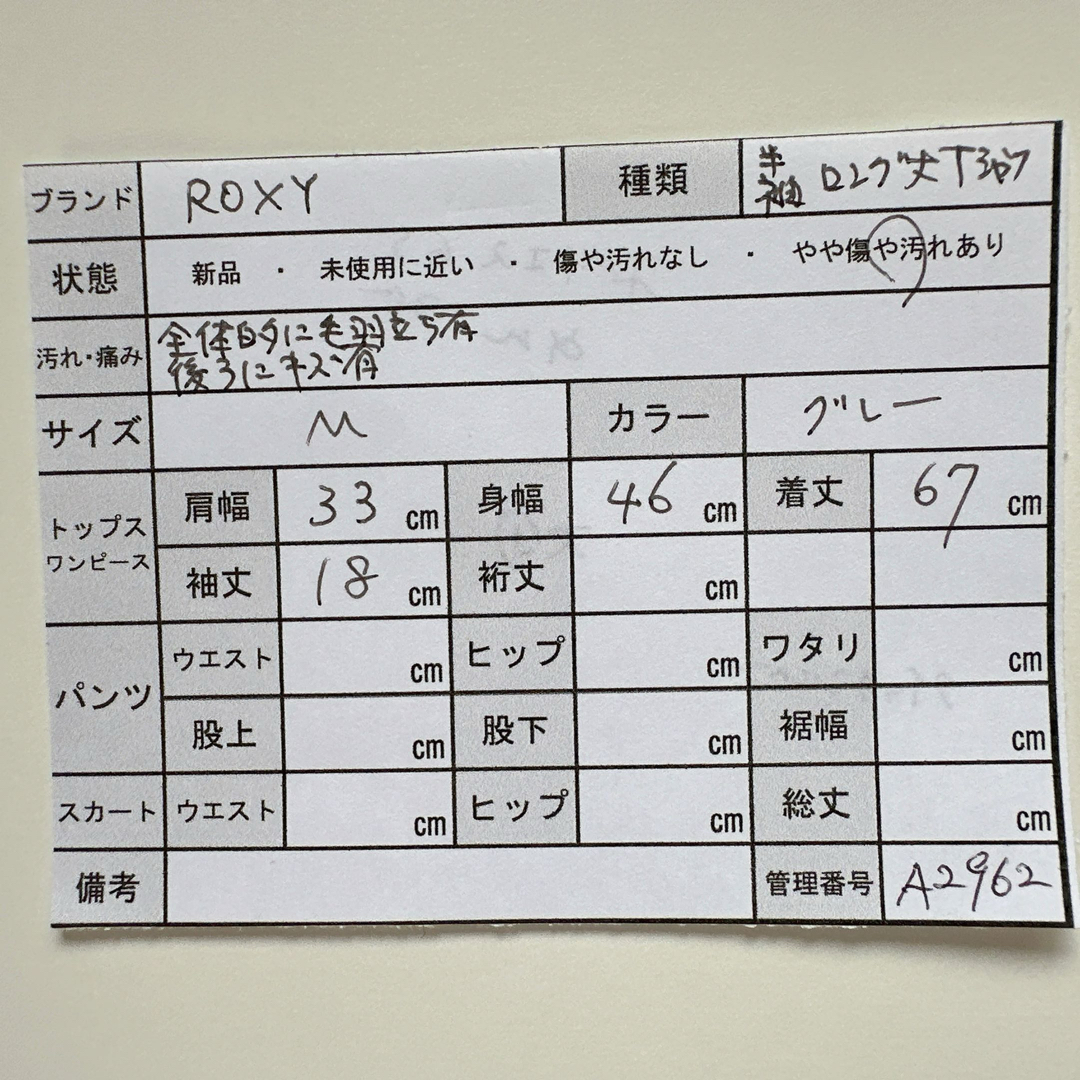 ブランド ROXY 種類 半袖 ロング丈Tシャツ
状態 新品 ・ 未使用に近い ・ 傷や汚れなし ・ やや傷や汚れあり
汚れ・痛み 全体的に毛羽立ち有
後ろにキズ有
サイズ M カラー グレー
トップス ワンピース 肩幅 33 cm 身幅 46 cm 着丈 67 cm
袖丈 18 cm 裄丈 cm
パンツ ウエスト cm ヒップ cm ワタリ cm
股上 cm 股下 cm 裾幅 cm
スカート ウエスト cm ヒップ cm 総丈 cm
備考 管理番号 A2962